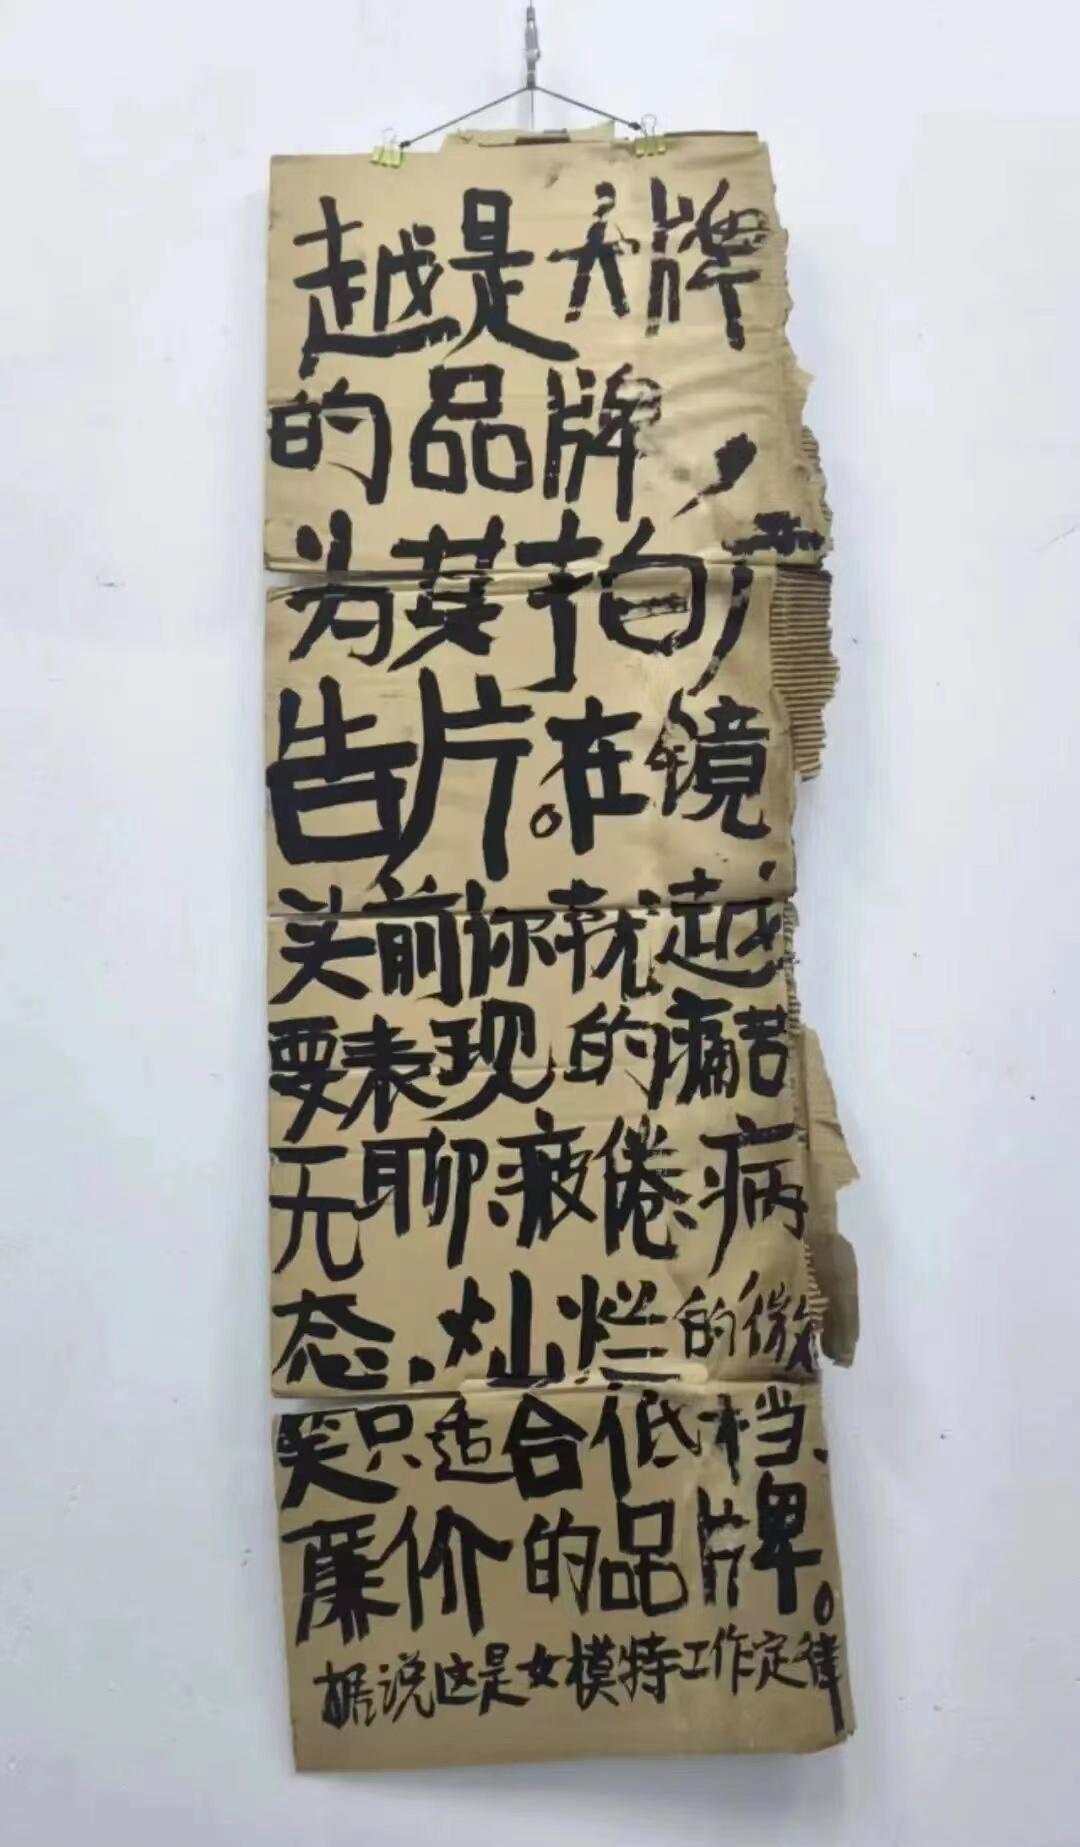 越是大牌
的品牌，
为其拍广
告片。在镜
头前你就越
要表现的痛苦
无聊、疲倦、病
态，灿烂的微
笑只适合低档、
廉价的品牌。
据说这是女模特工作定律